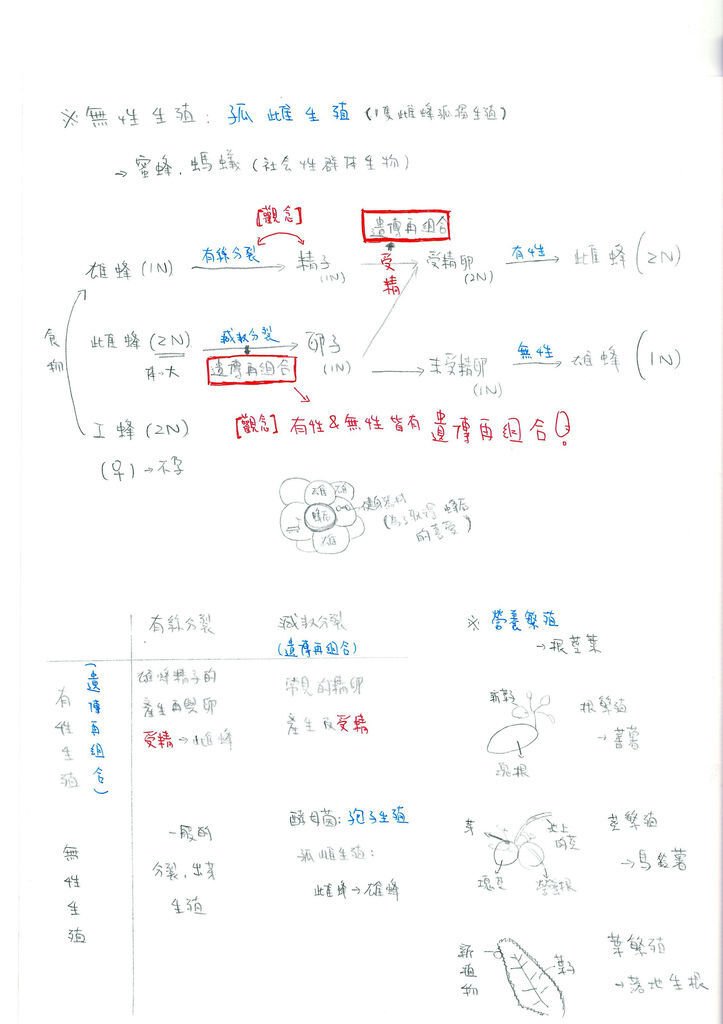 ※無性生殖：孤雌生殖（1隻雌蜂孤獨生殖）
→蜜蜂、螞蟻（社会性群体生物）
[觀念]
遺傳再組合
雄蜂(1N) 有絲分裂 精子(1N) 受精 受精卵(2N) 有性 雌蜂(2N)
食物
雌蜂(2N) 減数分裂 卵子(1N) 未受精卵(1N) 無性 雄蜂(1N)
体大 遺傳再組合
工蜂(2N) [觀念]有性&無性皆有遺傳再組合!
(♀)→不孕
雄 雄
蜂后
雄
(為了取得蜂后
的喜愛)
有絲分裂 減数分裂
(遺傳再組合)
有性生殖
(遺傳再組合)
雄蜂精子的
產生再與卵
受精→雌蜂
常見的精卵
產生及受精
無性生殖
一般的
分裂、出芽
生殖
酵母菌：孢子生殖
孤雌生殖：
雌蜂→雄蜂
※營養繁殖
→根莖葉
新芽
塊根
根繁殖
→蕃薯
芽
地上
肉莖
塊莖
營養根
莖繁殖
→馬鈴薯
新植物
葉子
葉繁殖
→落地生根